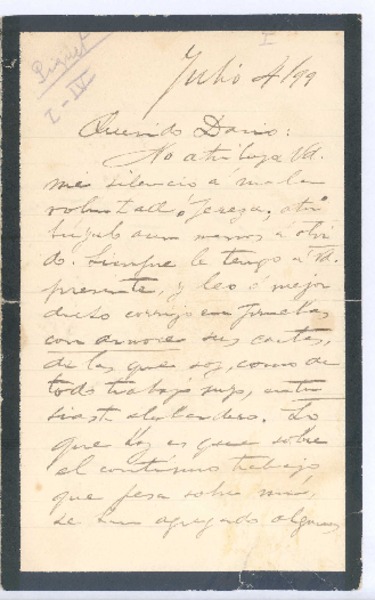 I
Piquet
I-IV
Julio 4/99
Querido Darío:
No atribuya Vd.
mi silencio á mala
voluntad ó pereza, atri
búyalo aun menos a olvi
do. Siempre le tengo á Vd.
presente, y leo ó mejor
dicho corrijo en pruebas
con amore sus cartas,
de las que soy, como de
todo trabajo suyo, entu
siasta
Lo
que hay es que sobre
el contínuo trabajo
que pesa sobre mí,
se han agregado algunas